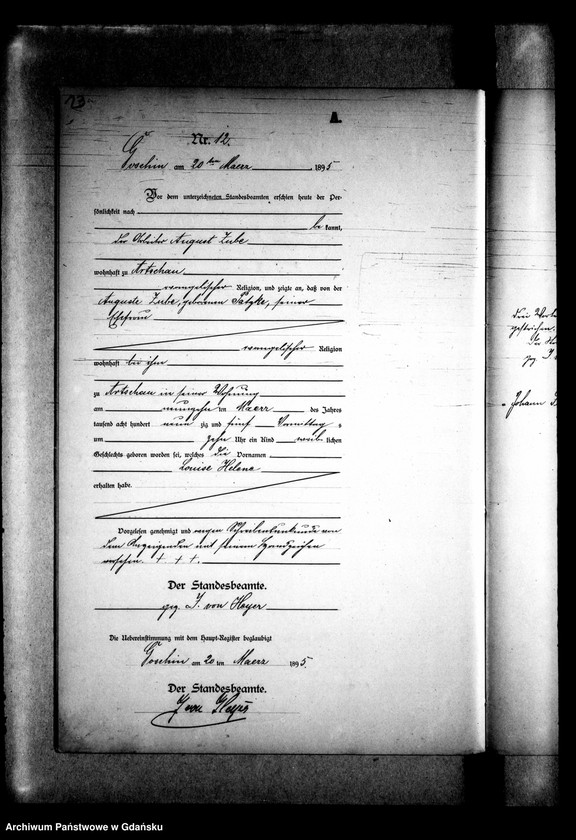 A.
Nr. 12.
Goschin am 20ten Maerz 1895
Vor dem unterzeichneten Standesbeamten erschien heute der Per-
sönlichkeit nach
be kannt,
der Arbeiter August Zube
wohnhaft zu Artschau
evangelischer Religion, und zeigte an, daß von der
Auguste Zube, geborenen Patzke, seiner
Ehefrau
evangelischer Religion
wohnhaft bei ihm
zu Artschau in seiner Wohnung
am neunzehn ten Maerz des Jahres
tausend acht hundert neun zig und fünf Vormittag s
um zehn Uhr ein Kind weib lichen
Geschlechts geboren worden sei, welches die Vornamen
Louise Helene
erhalten habe.
Vorgelesen genehmigt und wegen Schreibensunkunde von
dem Anzeigenden mit seinem Handzeichen
versehen. + + +.
Der Standesbeamte.
gez. J. von Heyer
Die Uebereinstimmung mit dem Haupt-Register beglaubigt
Goschin am 20 ten Maerz 1895
Der Standesbeamte.
J von Heyer
gestrichen.
Johann
Archiwum Państwowe w Gdańsku